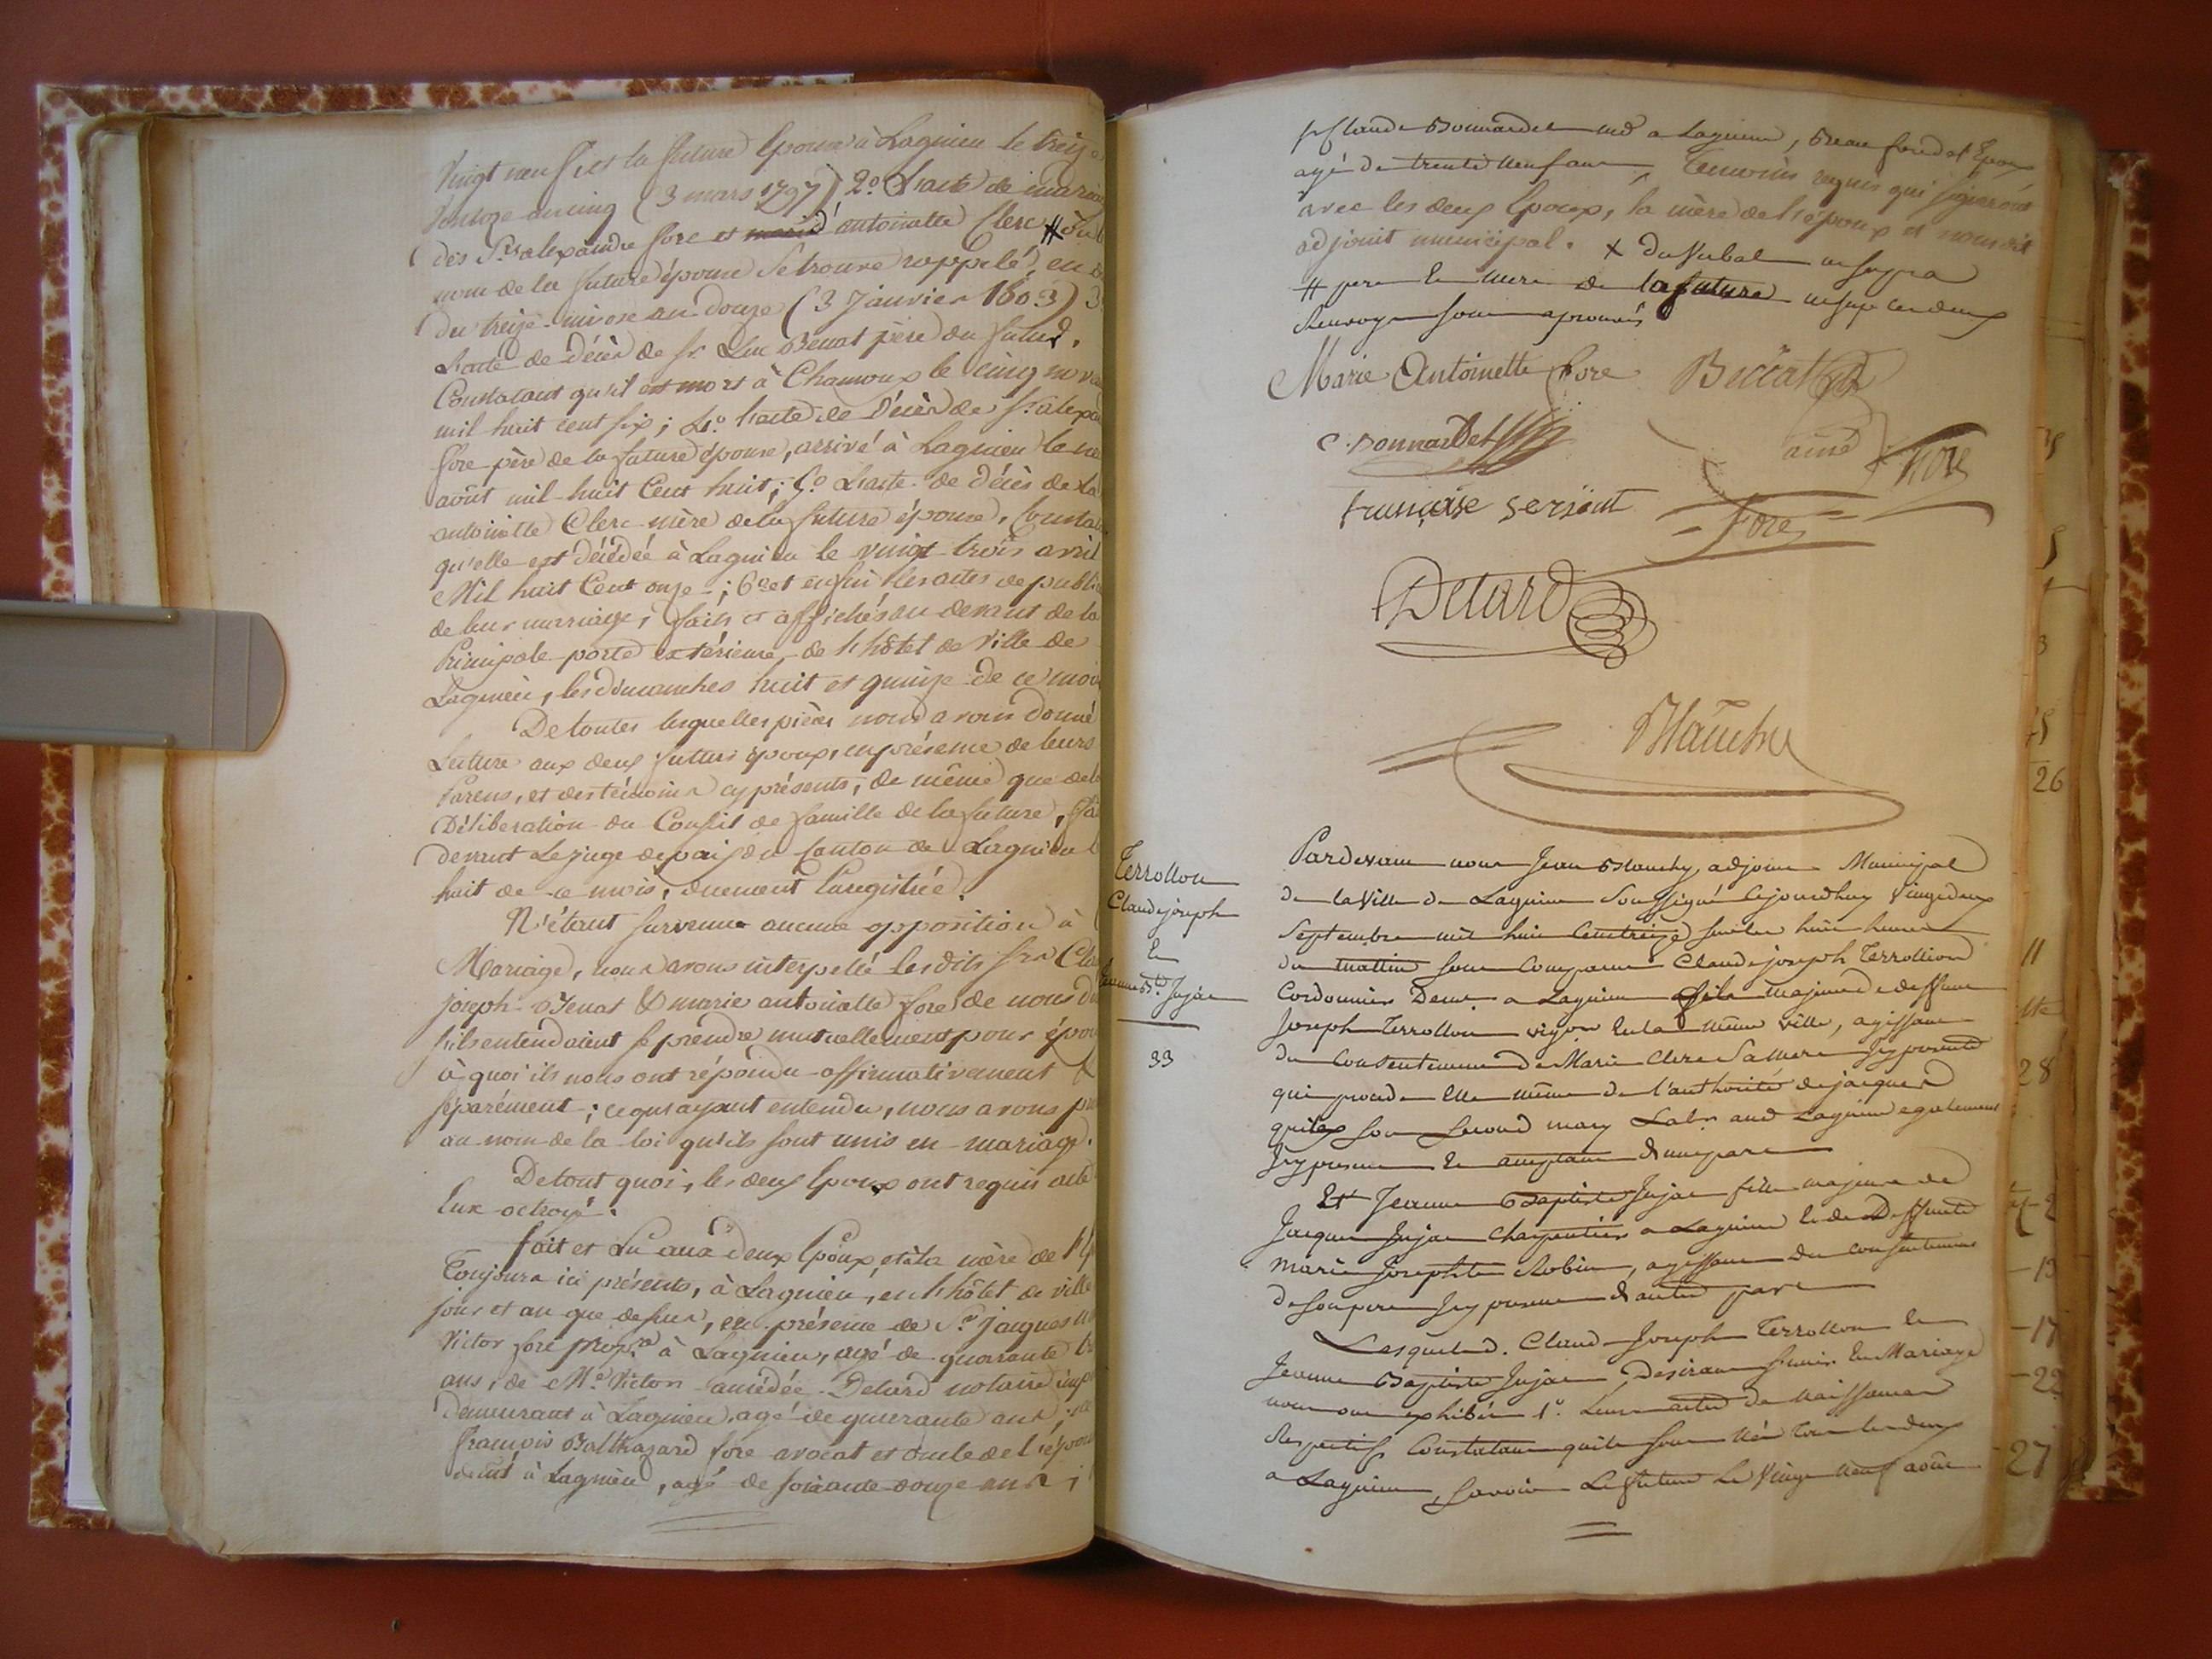 Vingt neuf et la future Epouse à Lagnieu le treize
Ventoze an cinq (3 mars 1797) 2.º L'acte de mariage
des Srs alexandre fore et antoinette Clerc # où
nom de la future épouse se trouve rappelé, en
du treize nivose an douze (3 Janvier 1803) 3
L'acte de décès de Sr. Luc père du futur,
Constatant qu'il est mort à Chamoux le cinq
mil huit cent six; 4.º L'acte de décès de Sr. alexan
fore père de la future épouse, arrivé à Lagnieu le
août mil huit Cent huit; 5.º L'acte de décès de
antoinette Clerc mère de la future épouse, Consta
qu'elle est décédée à Lagnieu le vingt trois avril
Mil huit Cent onze; 6.º et enfin les actes de publi
de leur mariage, faits et affichés au devant de la
Principale porte extérieure, de l'hôtel de Ville de
Lagnieu, les dimanches huit et quinze de ce mois
De toutes lesquelles pièces nous avons donné
Lecture aux deux futurs époux, en présence de leurs
Parens, et des témoins cy présents, de même que de
Délibération du Conseil de famille de la future,
devant Le juge de paix du Canton de Lagnieu
huit de ce mois, duement Enregistrée.
N'étant survenue aucune opposition à
Mariage, nous avons interpellé les dits Srs Cla
joseph & marie antoinette fore de nous
s'ils entendaient se prendre mutuellement pour épou
à quoi ils nous ont répondu affirmativement &
séparément; ce qu'ayant entendu, nous avons
au nom de la loi qu'ils sont unis en mariage.
De tout quoi, les deux Epoux ont requis acte
Eux octroyé.
fait et Lu aux deux Epoux, et à la mère de l'
Toujours ici présents, à Lagnieu, en l'hôtel de ville
jour et an que dessus, en présence de Sr. jacques
Victor fore à Lagnieu, agé de quarante
ans, de Me. Victor amédée Detard notaire
demeurant à Lagnieu, agé de quarante ans;
françois Balthazard fore avocat et oncle de l'épou
demt à Lagnieu, agé de soixante douze ans;
Claude Bonnardet md a Lagnieu, Beau de l'Epoux
agé de trente neuf ans, Temoins requis qui signeront
avec les deux Epoux, la mère de l'époux et nousdit
adjoint municipal. X
# pere la mere de la future
Renvoys sont aprouvés
Marie Antoinette fore
C. Bonnardet ainé fore
françoise serjent fore
Detard
Blanchy
Terrollon
Claude joseph
Et
Jeanne Bte Jujat
33
Pardevant nous Jean Blanchy, adjoint Municipal
de la Ville de Lagnieu Soussigné Cejourdhuy Vingt deux
Septembre mil huit Cent treize sur les huit heures
du mattin sont Comparus Claude joseph Terrollion
Cordonnier Demt a Lagnieu fils majeur de deffunt
Joseph Terrollon vigon En la même ville, agissant
du Consentement de Marie Clerc Sa Mere Icy presente
qui procede Elle même de l'authorité de jacques
son second mary Labr aud Lagnieu egalement
Icy present Et acceptant d'une part
Et Jeanne Baptiste Jujat fille majeure de
Jacques Jujat Charpentier a Lagnieu Et de Deffunte
Marie Josephte Robin, agissant du Consentement
de son pere Icy present d'autre part
Lesquels d. Claude Joseph Terrollon Et
Jeanne Baptiste Jujat Desirant s'unir En Mariage
nous ont exhibés 1º. Leurs actes de Naissances
Respectifs Constatant quils sont Nés Tous les deux
a Lagnieu, Savoir Le futur Le Vingt Neuf août
26
11
28
-13
-17
-22
27